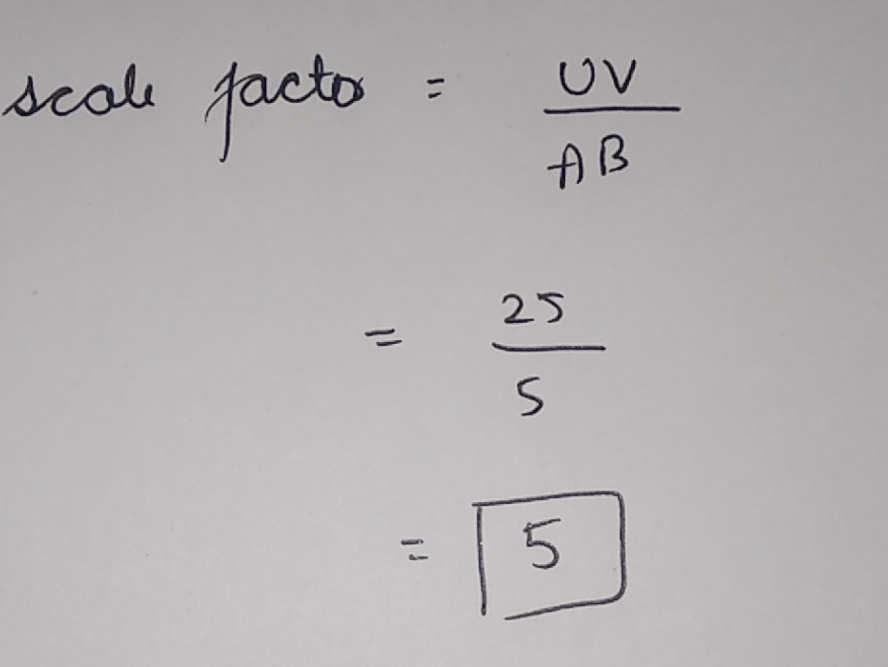 scale facto = UV
AB
= 25
5
= 5